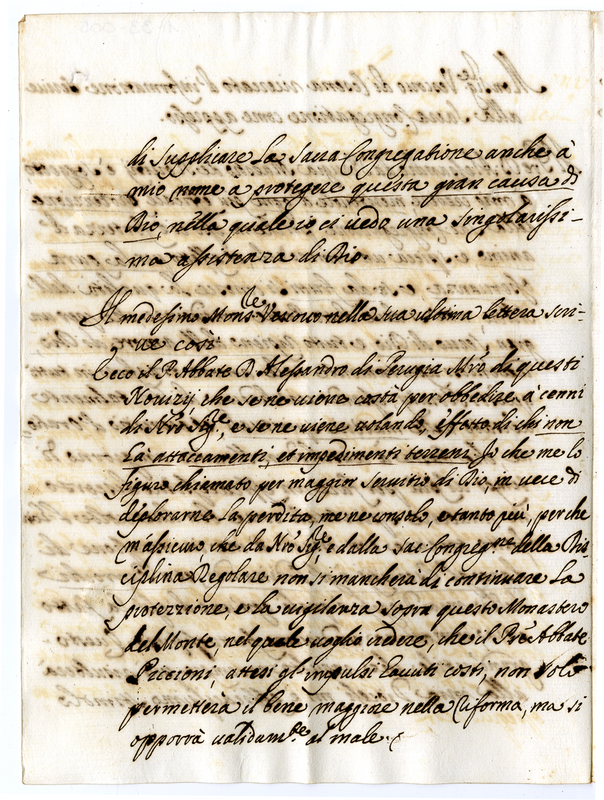 di supplicare la Sacra Congregatione anche à
mio nome a protegere questa gran causa di
Dio, nella quale io ci vedo una singolarissi-
ma assistenza di Dio.
Il medesimo Mons.re Vescovo nella sua ultima lettera scri-
ve così
Ecco il P. Abbate D. Alessandro di Perugia Mrõ di questi
Novizij che se ne viene costà per obbedire a' cenni
di Nrõ Sig.re, e se ne viene volando, effetto di chi non
hà attaccamenti, et impedimenti terreni. Io che me lo
figuro chiamato per maggior servitio di Dio, in vece di
deplorarne la perdita, me ne consolo, e tanto più, perche
m'assicuro, che da Nrõ Sig.re, e dalla Sac Congreg.ne della Dis-
ciplina Regolare non si mancherà di continuare la
protezzione, e la vigilanza sopra questo Monastero
del Monte, nel quale voglio credere, che il Prẽ Abbate
Piccioni, attesi gl'impulsi havuti costì, non solo
permetterà il bene maggiore nella Riforma, ma si
opporrà validam.te al male.